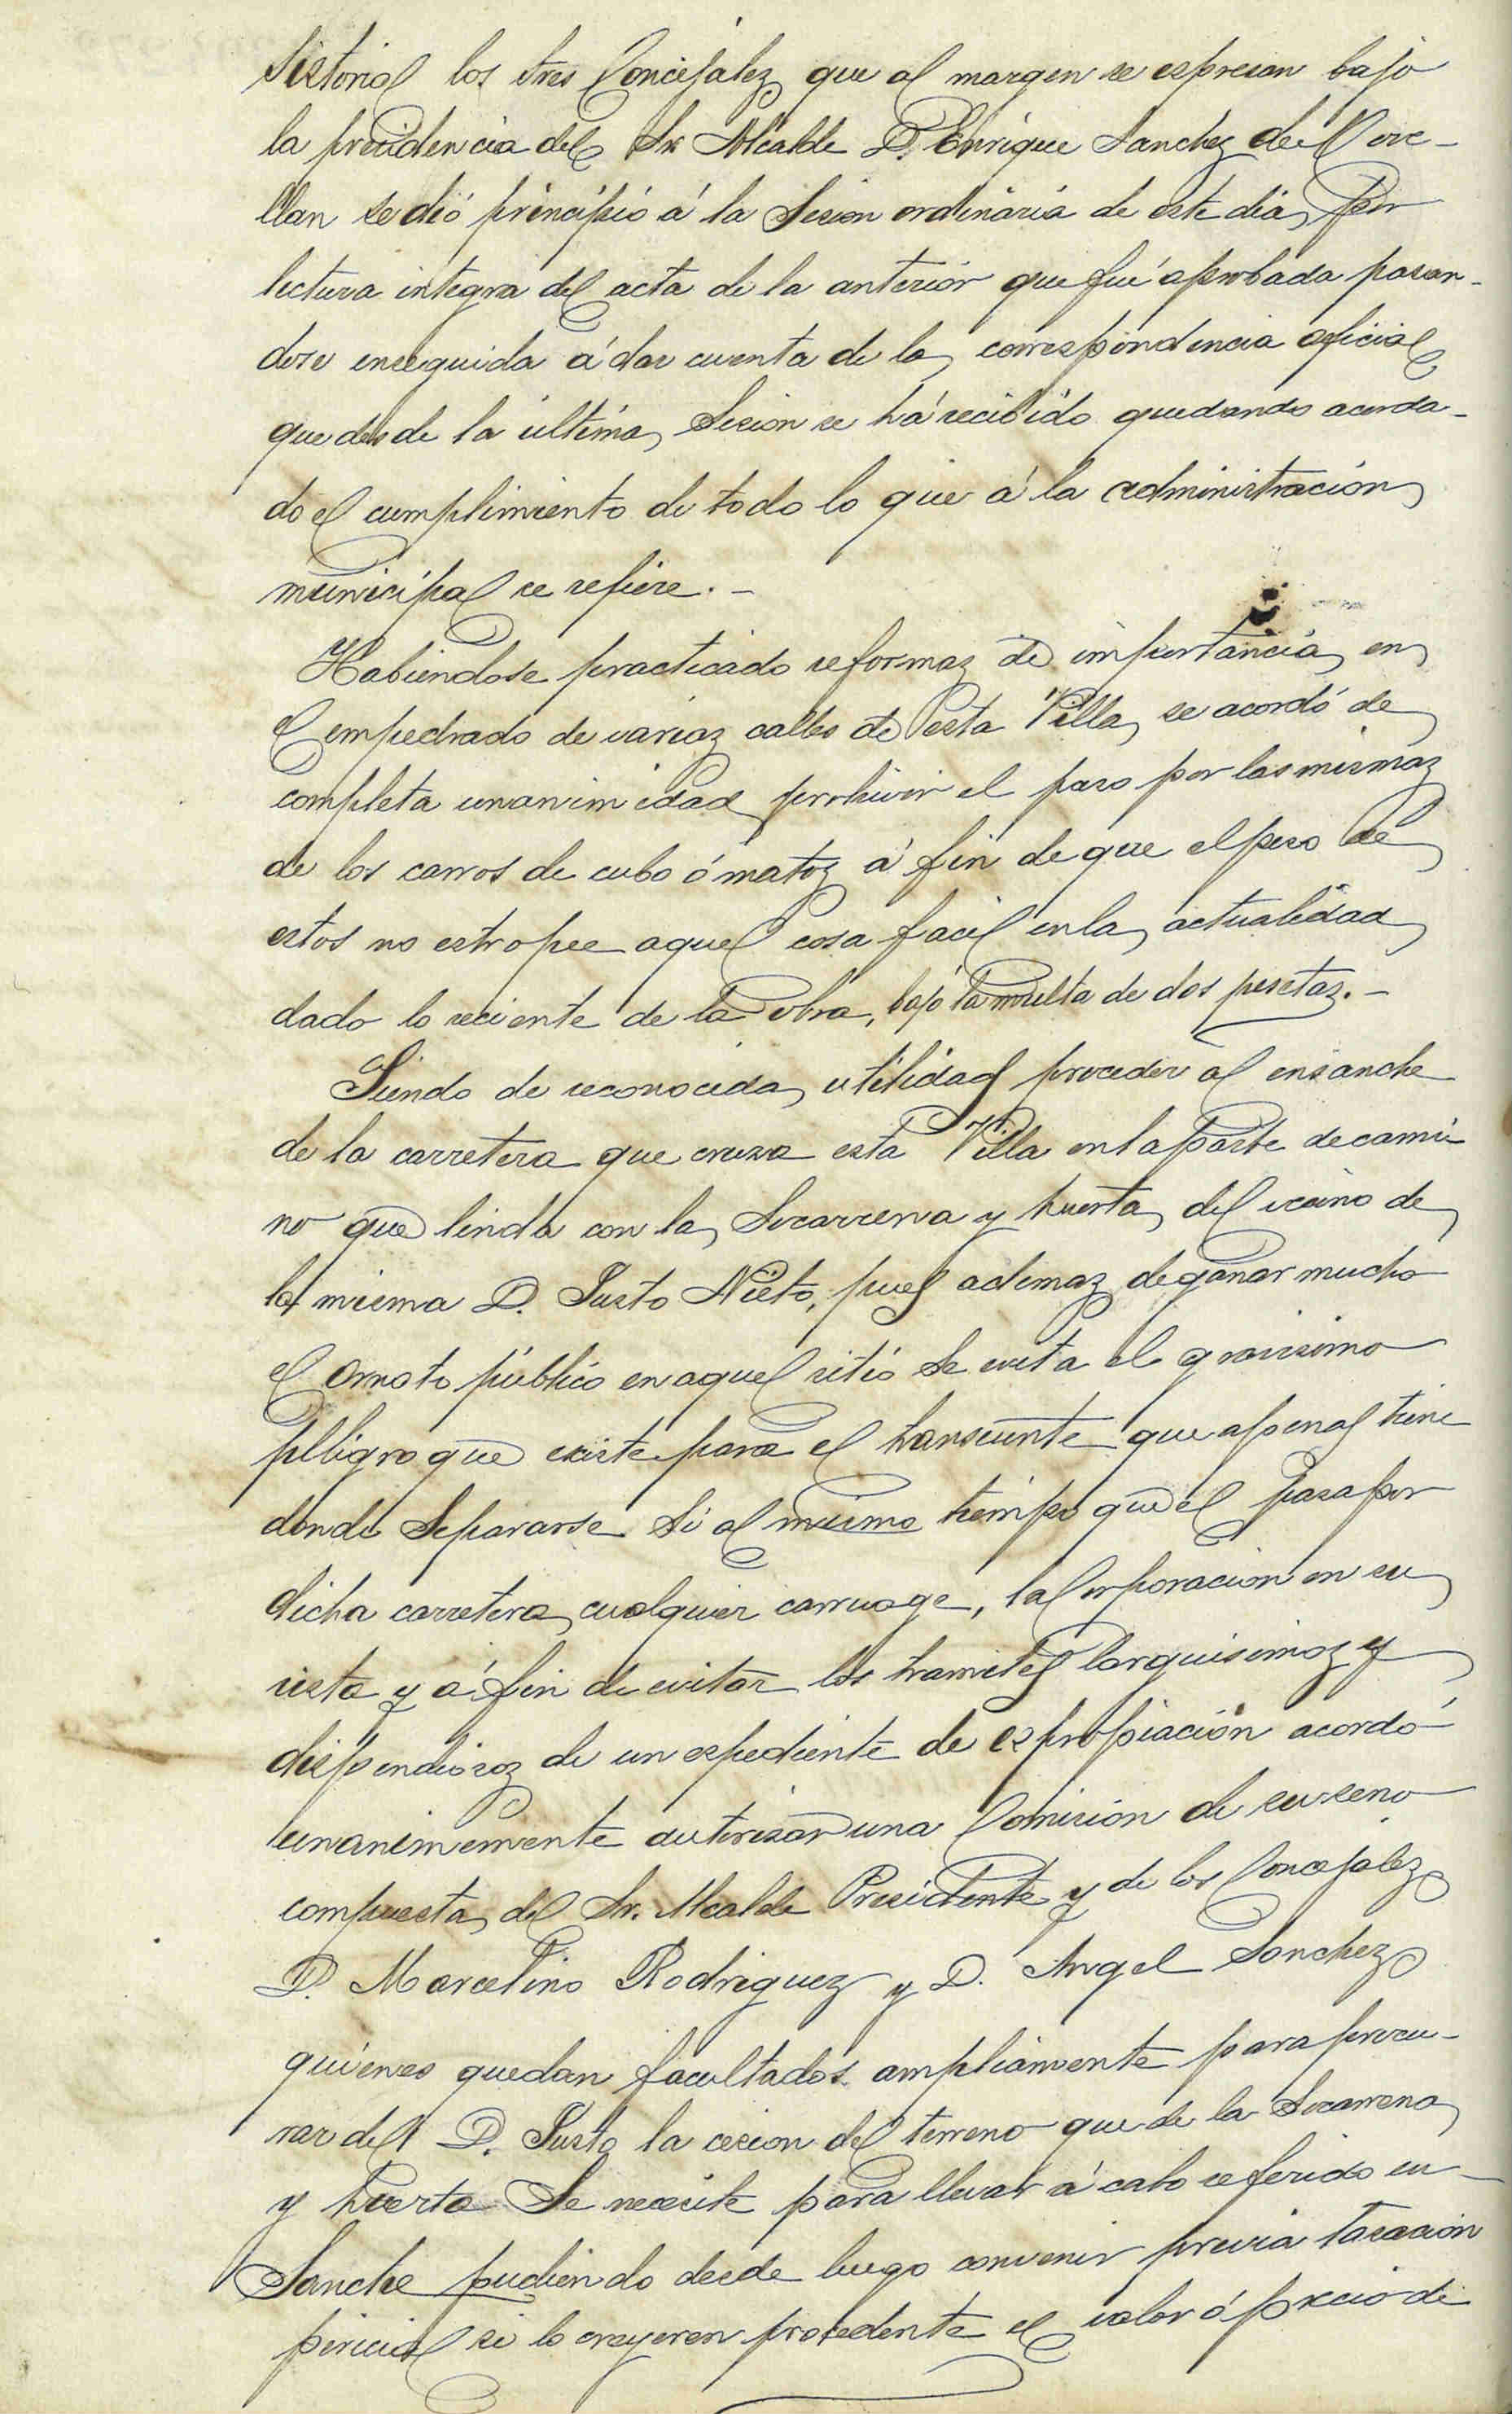 sistorial los tres Concejalez que al margen se espresan bajo
la presidencia del Sr Alcalde D. Enrique Sanchez de More-
llan se dió principio á la Sesion ordinaria de este dia, por
lectura integra del acta de la anterior que fué aprobada pasan-
dose enseguida á dar cuenta de la correspondencia oficial
que desde la última Sesion se há recibido quedando acorda-
do el cumplimiento de todo lo que á la administración
municipal se refiere.-
Habiendose practicado reformaz de importancia en
el empedrado de variaz calles de esta Villa se acordó de
completa unanimidad prohivir el paso por las mismaz
de los carros de cubo ó matoz á fin de que el peso de
estos no estropee aquel cosa facil en la actualidad
dado lo reciente de la obra, bajo la multa de dos pesetaz.-
Siendo de reconocida utilidad proceder al ensanche
de la carretera que cruza esta Villa en la parte de cami-
no que linda con la Socarrena y huerta del vecino de
la misma D. Justo Nieto, pues ademaz de ganar mucho
el ornato público en aquel sitio se evita el gravisimo
peligro que existe para el transeunte que apenas tiene
donde Separarse si al mismo tiempo que él pasa por
dicha carretera cualquier carruage, la Corporacion en su
vista y á fin de evitar los tramites larguisimoz y
dispendiosoz de un espediente de espropiación acordó
unanimemente autorizar una Comision de su seno
compuesta del Sr. Alcalde Presidente y de los Concejalez
D. Marcelino Rodriguez y D. Angel Sanchez
quienes quedan facultados ampliamente para procu-
rar del D. Justo la cesion del terreno que de la Socarrena
y huerta Se necesite para llevar á cabo referido en-
Sanche pudiendo desde luego convenir previa tasación
pericial si lo creyeren procedente el valor ó precio de